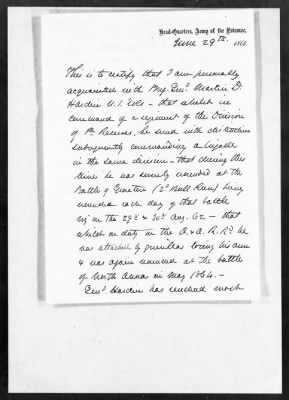 Head-Quarters, Army of the Potomac,
June 29th. 1865
This is to certify that I am personally
acquainted with Brig. Genl. Martin D.
Hardin U.S. Vols - that whilst in
command of a regiment of the Division
of Pa Reserves, he served with distinction
subsequently commanding a brigade
in the same division - that during this
time he was severely wounded at the
Battle of (2d Bull Run) being
wounded each day of that battle
viz on the 29th & 30th Aug. 62 - that
whilst on duty on the O. & A. R.Rd he
was attacked by guerrillas losing his arm
& was again wounded at the battle
of North Anna in May 1864 -
Genl. Hardin has rendered most